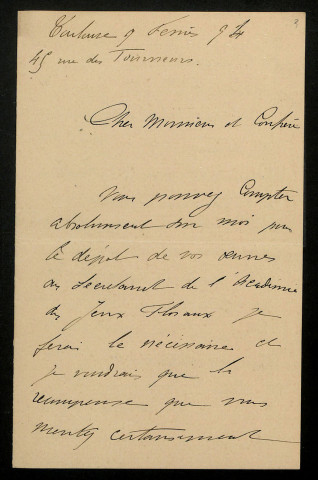 Toulouse 9 Février 94
45 rue des Tourneurs.
Cher Monsieur et Confrère
Vous pouvez Compter
absolument sur moi pour
le dépôt de vos œuvres
au Secrétariat de l'Académie
des Jeux Floraux je
ferai le nécessaire et
je voudrais que la
récompense que vous
méritez certainement